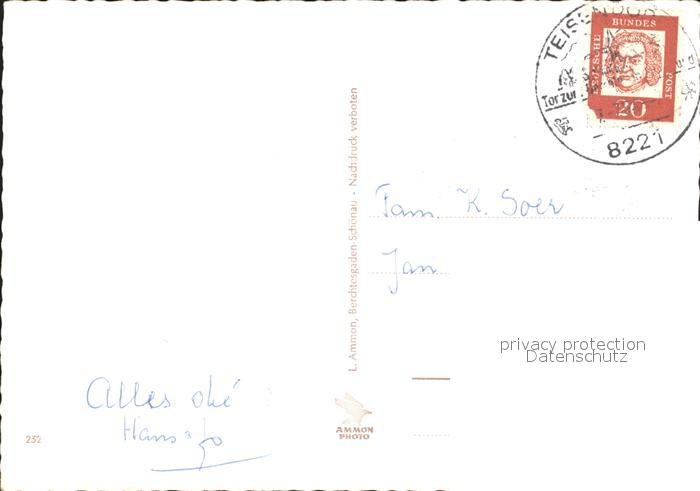 TEISENDORF
DEUTSCHE
BUNDES
POST
20
Tor zur
8221
L. Ammon, Berchtesgaden-Schönau · Nachdruck verboten
Fam. K. Soer
Jan
privacy protection
Datenschutz
Alles oké
Hans-Jo
232
AMMON
PHOTO